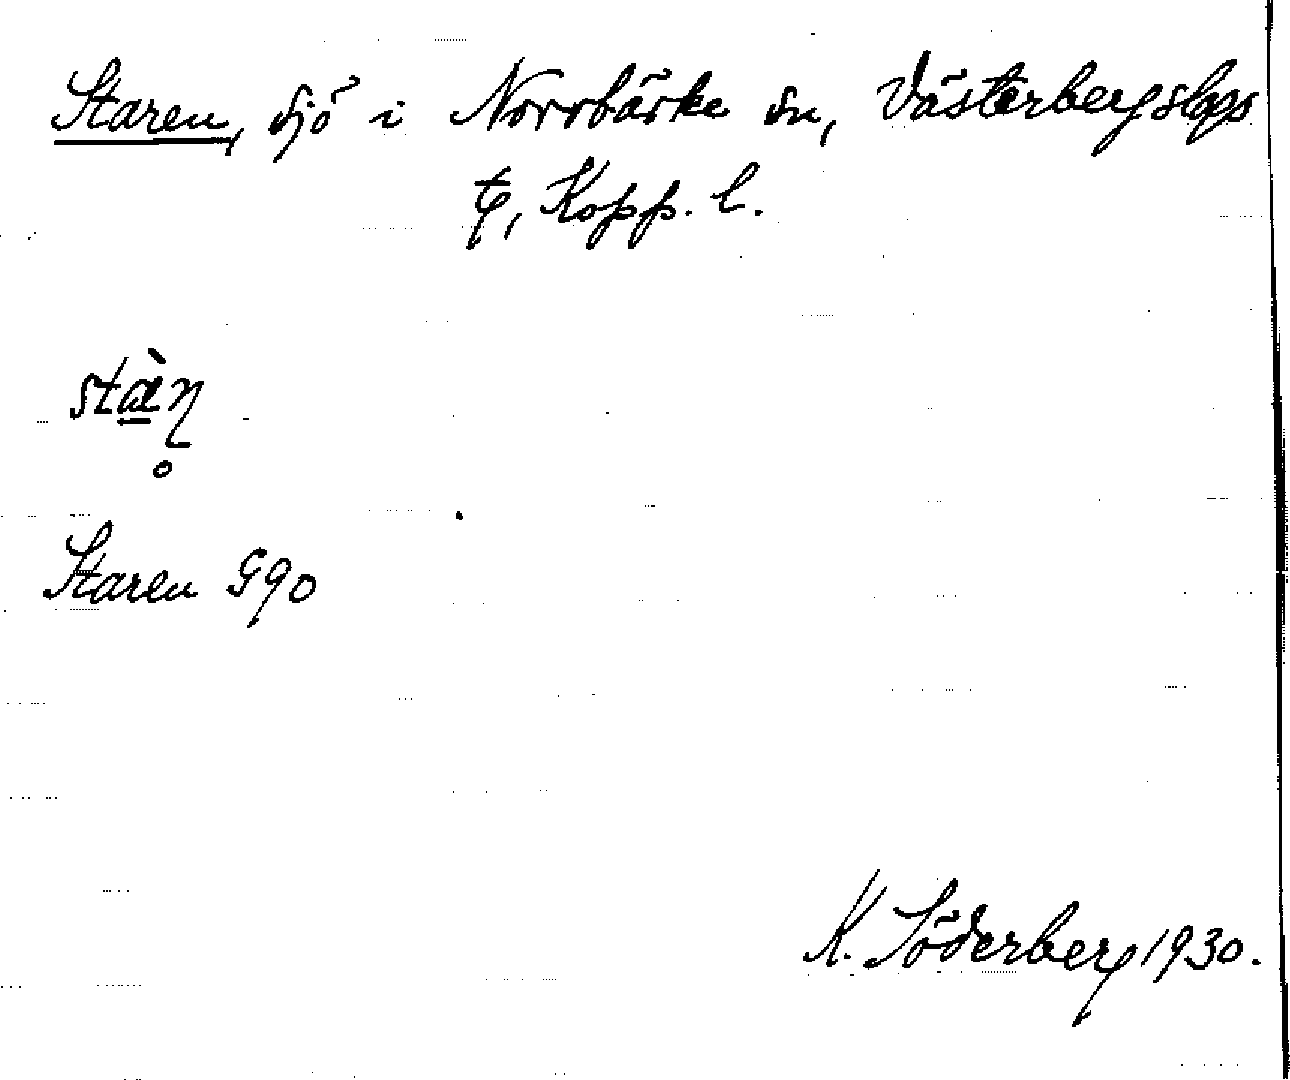 Staren, sjö i Norrbärke sn, Västerbergslags
t, Kopp. l.
stàɳ̥
Staren G90
K. Söderberg 1930.